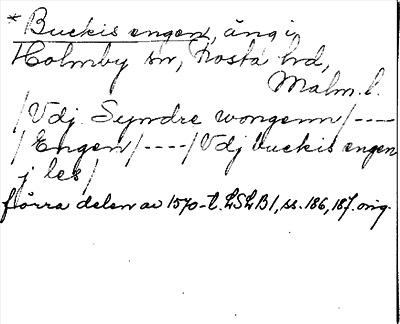 * Buckis engen, äng i
Holmby sn, Frosta hrd,
Malm. l.
/Vdj Syndre wongenn/----
/Engen/----/Vdj buckis engen
j les/
förra delen av 1570-t. LSLB1, ss. 186, 187. orig.